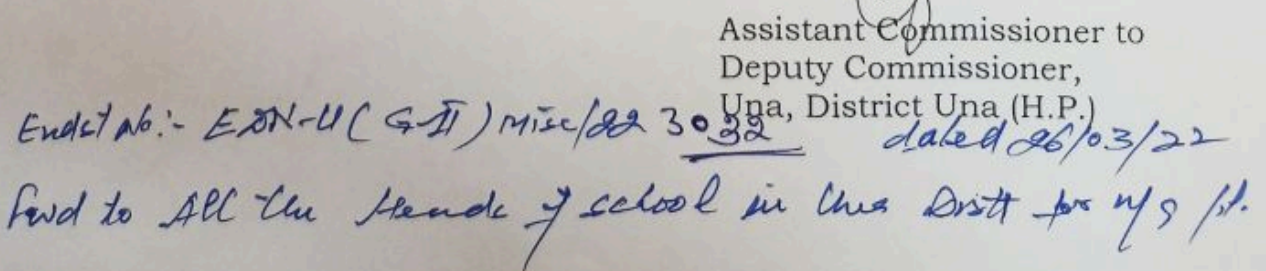 Assistant Commissioner to
Deputy Commissioner,
Una, District Una (H.P.)
Endst No:- EDN-U(G-II) Misc/22 3032 dated 26/03/22
Fwd to All the Heads of school in this Distt for n/a pl.